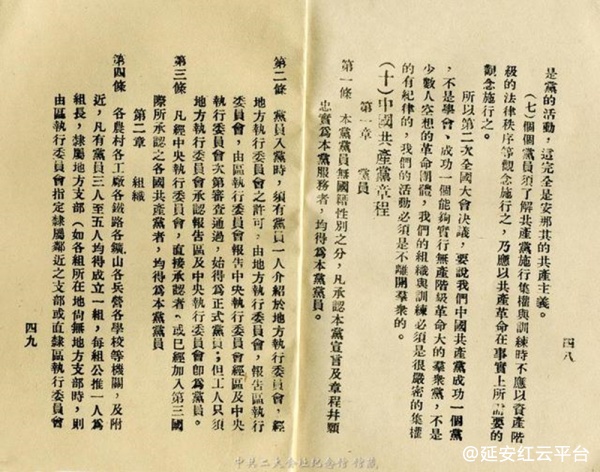 四八
是黨的活動，這完全是安那其的共產主義。
(七)個個黨員須了解共產黨施行集權與訓練時不應以資產階
級的法律秩序等觀念施行之，乃應以共產革命在事實上所需要的
觀念施行之。
所以第二次全國大會決議，要說我們中國共產黨成功一個黨
，不是學會，成功一個能夠實行無產階級革命大的羣衆黨，不是
少數人空想的革命團體，我們的組織與訓練必須是很嚴密的集權
的有紀律的，我們的活動必須是不離開羣衆的。
(十)中國共產黨章程
第一章 黨員
第一條 本黨黨員無國籍性別之分，凡承認本黨宣言及章程幷願
忠實爲本黨服務者，均得爲本黨黨員。
第二條 黨員入黨時，須有黨員一人介紹於地方執行委員會，經
地方執行委員會之許可，由地方執行委員會，報告區執行
委員會，由區執行委員會報告中央執行委員會經區及中央
執行委員會次第審查通過，始得爲正式黨員；但工人只須
地方執行委員會承認報告區及中央執行委員會卽爲黨員。
第三條 凡經中央執行委員會，直接承認者，或已經加入第三國
際所承認之各國共產黨者，均得爲本黨黨員
第二章 組織
第四條 各農村各工廠各鐵路各鑛山各兵營各學校等機關，及附
近，凡有黨員三人至五人均得成立一組，每組公推一人爲
組長，隸屬地方支部（如各組所在地尙無地方支部時，則
由區執行委員會指定隸屬鄰近之支部或直隸區執行委員會
四九
中共二大会址纪念馆 馆藏
@延安红云平台